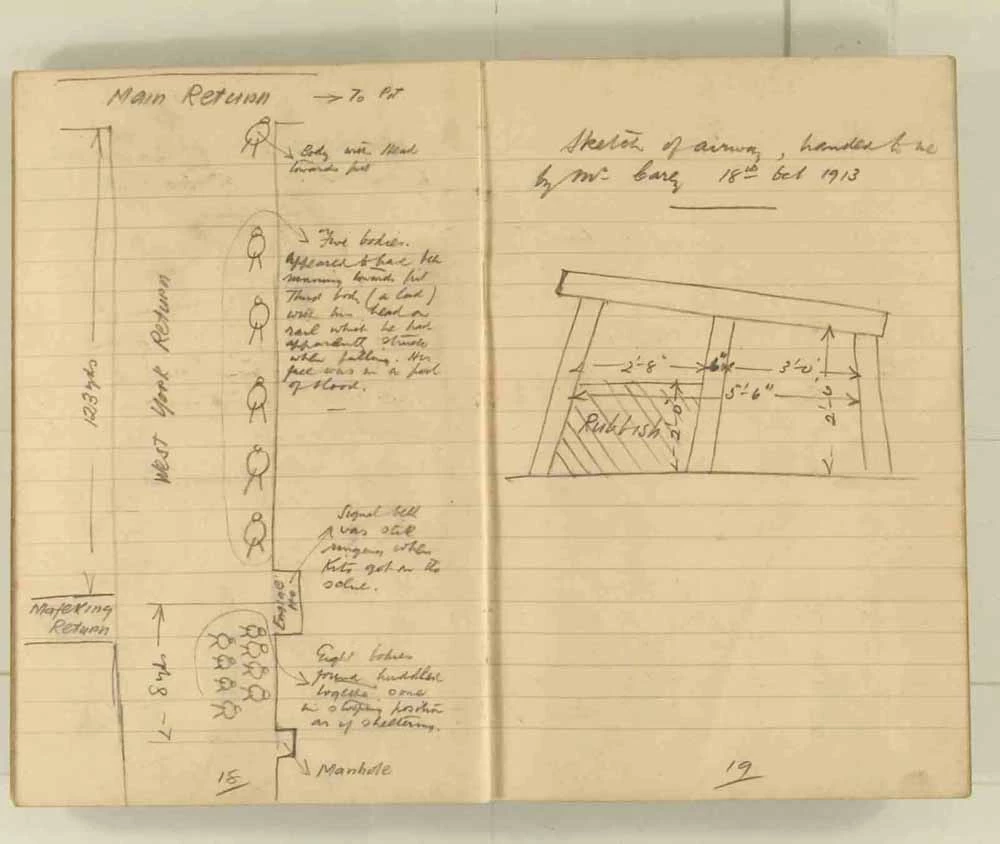 Main Return → To Pit
Body with Head
towards pit
123 yds
West York Return
Five bodies.
Appeared to have been
running towards pit
Third body (a lad)
with his head on
rail which he had
apparently struck
when falling. His
face was in a pool
of blood.
Signal bell
was still
ringing when
Kits got on the
scene.
Engine
Ho.
Mafeking
Return
8 yds
Eight bodies
found huddled
together some
in stooping position
as if sheltering.
Manhole
18
Sketch of airway, handed to me
by Mr Carey 18th Oct 1913
2'-8" 6" 3'-0"
5'-6"
Rubbish
2'-0"
2'-0"
19